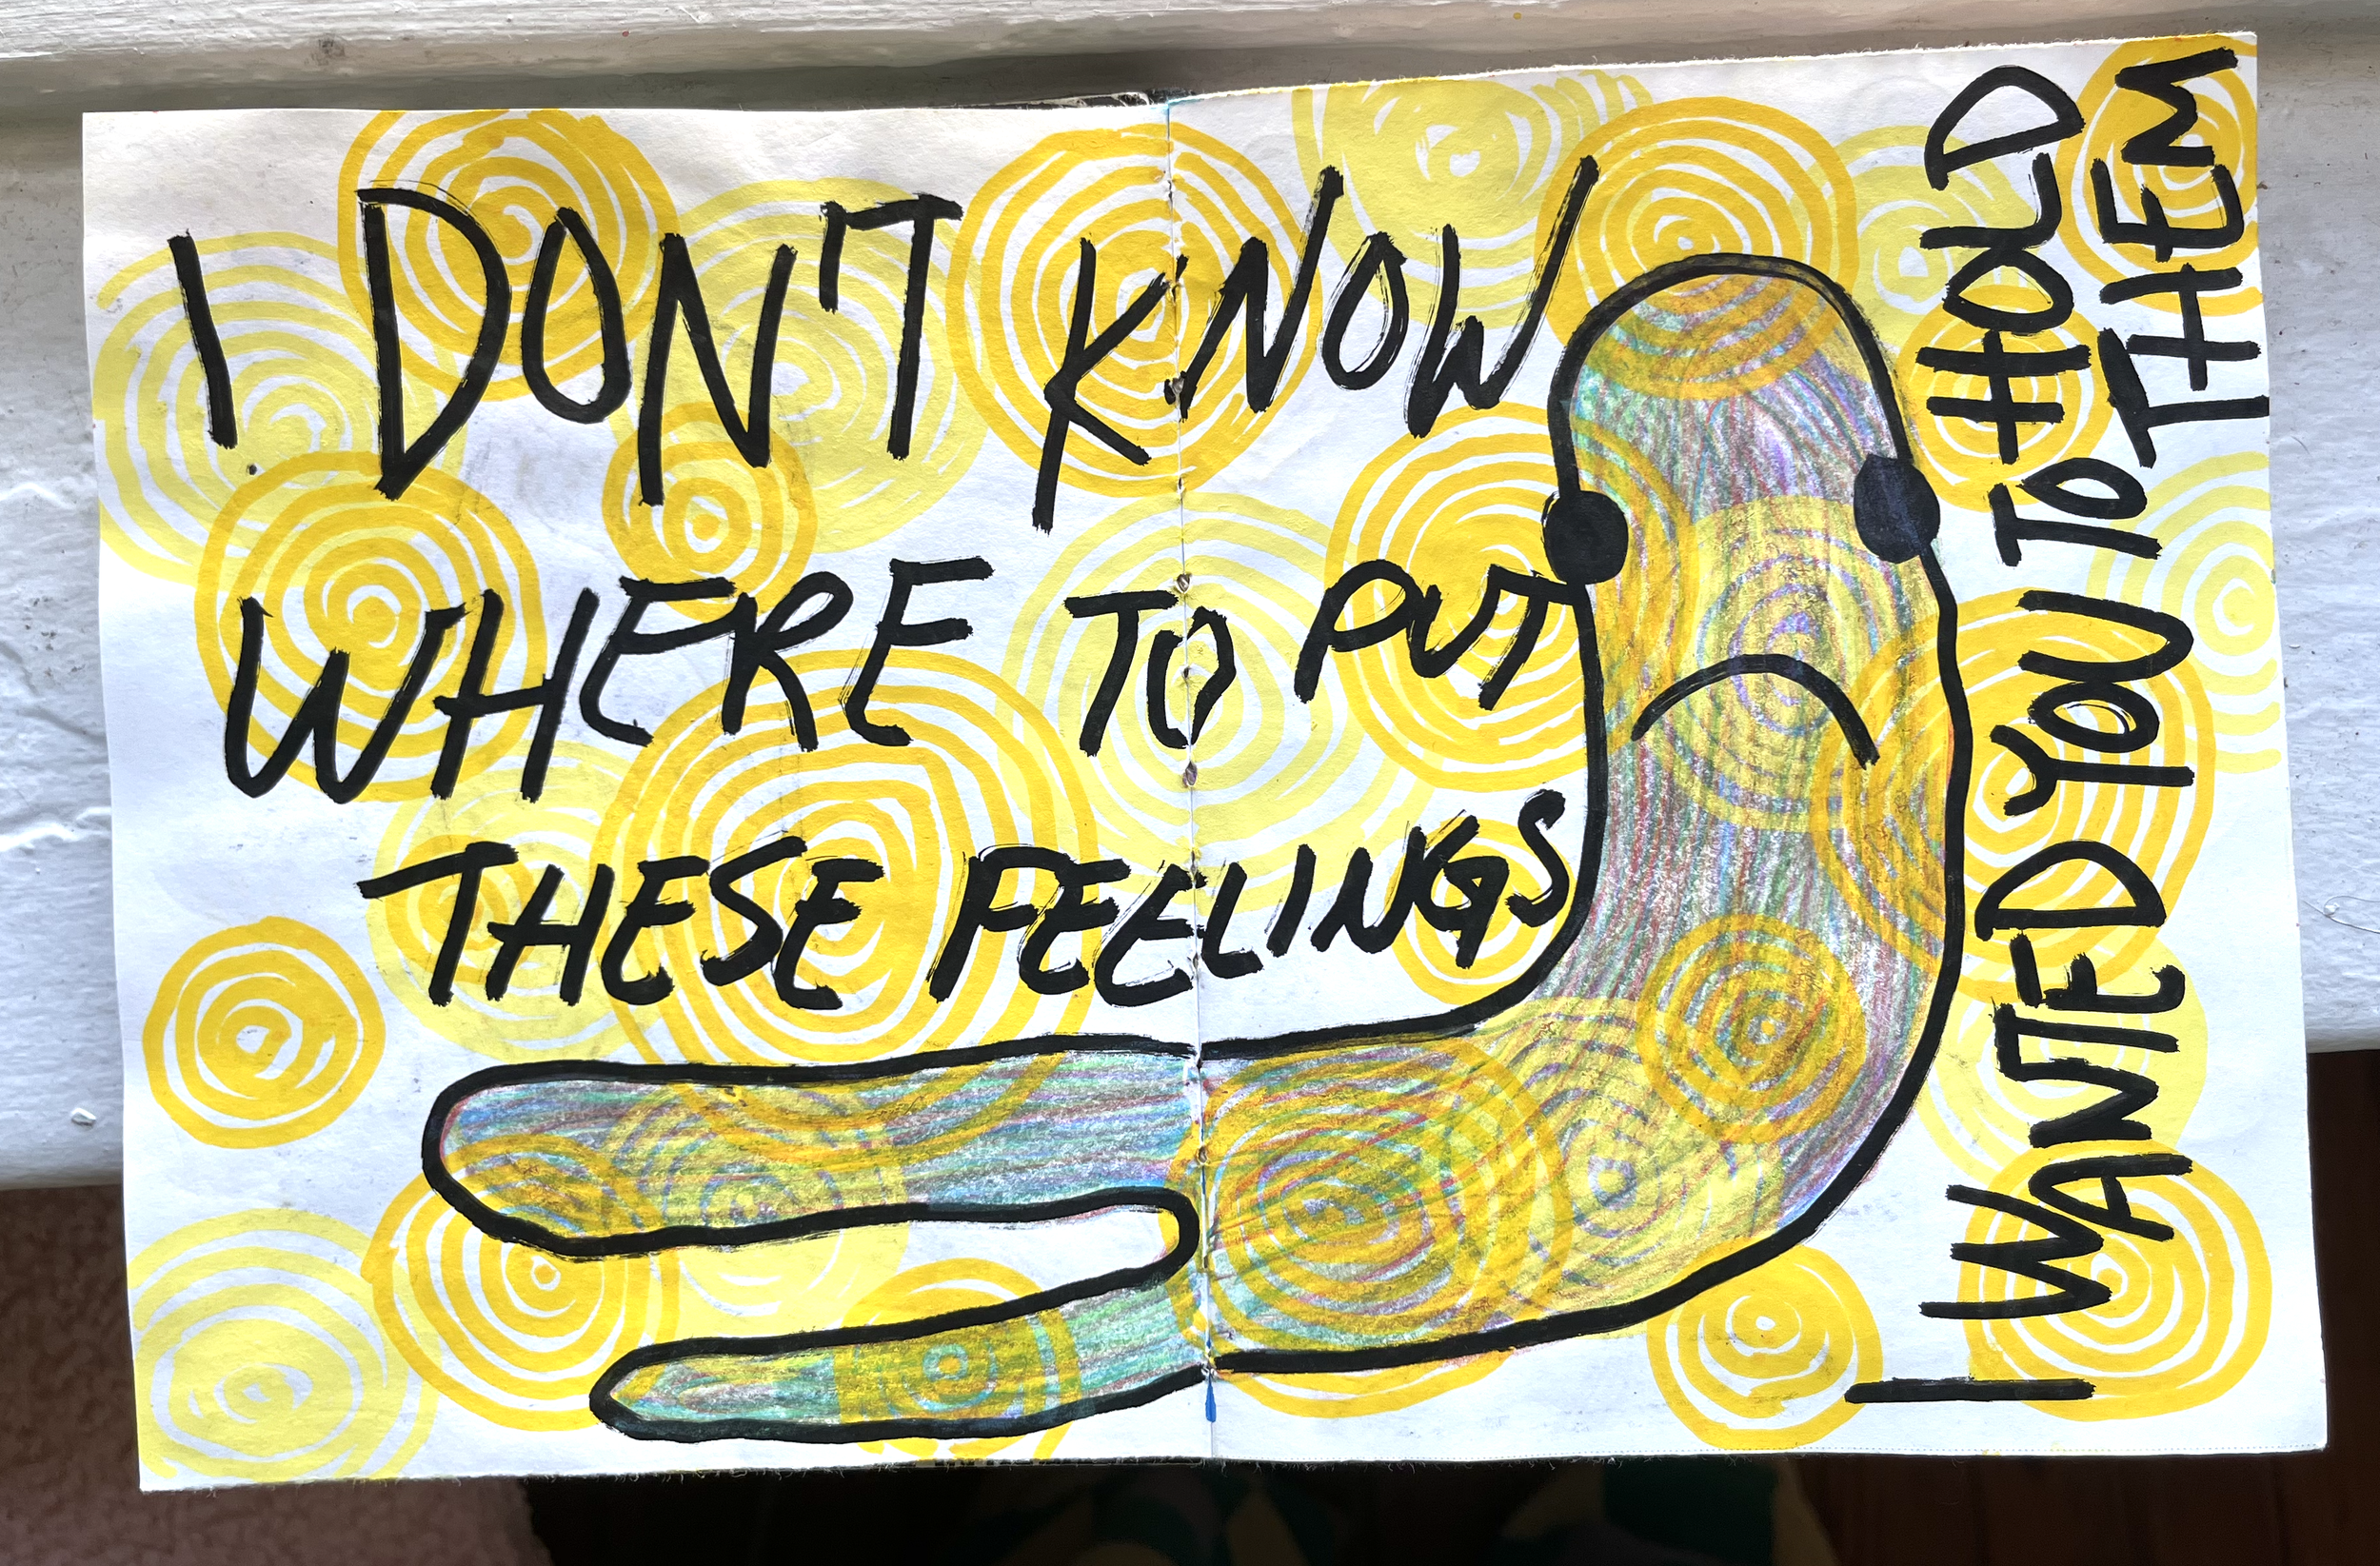 I DON'T KNOW
WHERE TO PUT
THESE FEELINGS
I WANTED YOU TO HOLD
TO THEM